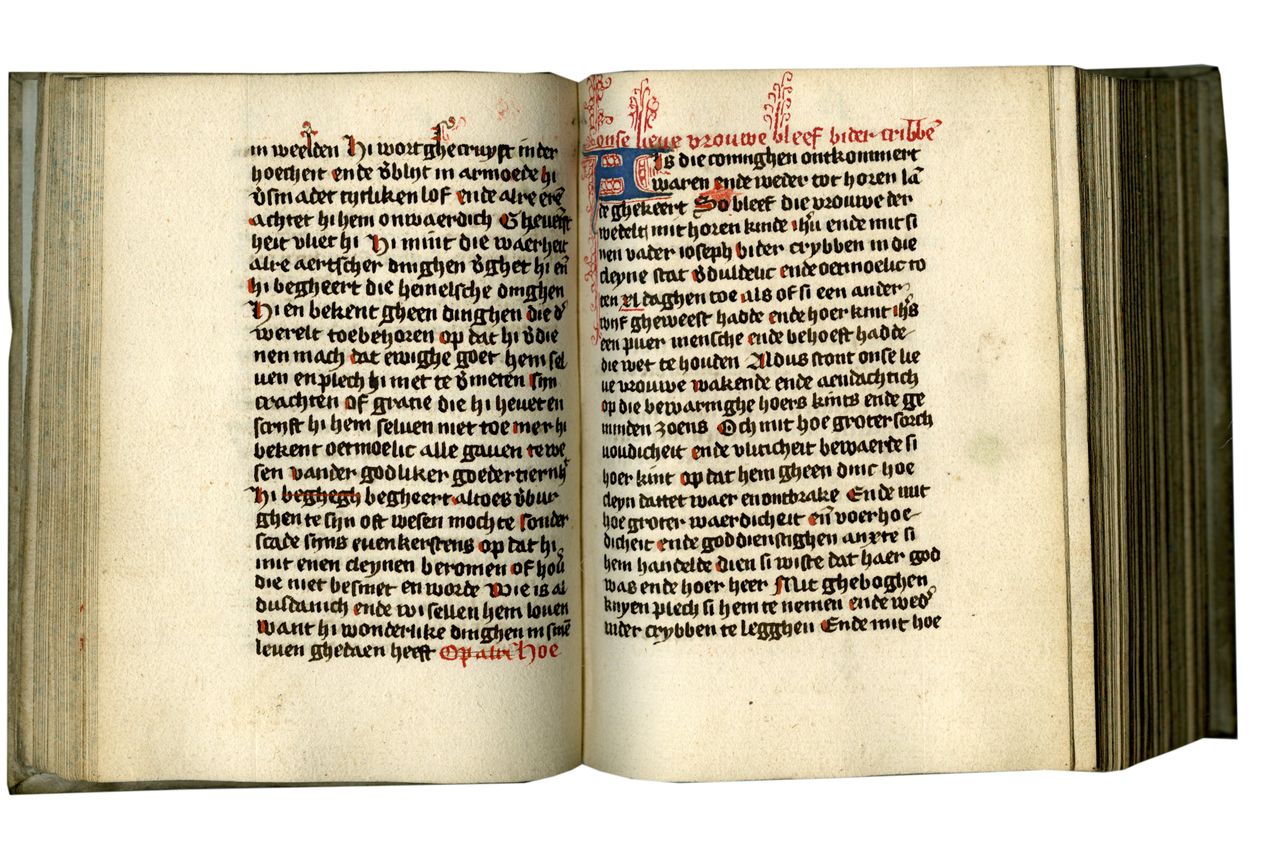 in weelden Hi wort ghecruyst in der
hoecheit ende v̄blijt in armoede hi
v̄smadet tytliken lof ende alre ere᷑
achtet hi hem onwaerdich Gheue᷑st
heit vliet hi Hi mint die waerheit
alre aertscher dinghen v̄ghet hi en̄
hi begheert die hemelsche dinghen
Hi en bekent gheen dinghen die d᷑
werelt toebehoren op dat hi v̄die
nen mach dat ewighe goet hem sel
uen en plech hi met te v̄meten sijn
crachten of gracie die hi heuet en
scrijft hi hem seluen niet toe mer hi
bekent oetmoelic alle gauen te we
sen vander godliker goedertiernh᷑
hi beghegh begheert altoes v̄bur
ghen te sijn oft wesen mochte sonder
scade sijns euenkerstens op dat hi
mit enen cleynen beromen of hou̅
die niet besmet en worde Wie is al
dusdanich ende wi sellen hem louen
want hi wonderlike dinghen in sine̅
leuen ghedaen heeft Op alre hoe
onse lieue vrouwe bleef bider cribbe᷑
Als die coninghen ontkommert
waren ende weder tot horen la̅
de ghekeert So bleef die vrouwe der
werelt mit horen kinde ihu̅ ende mit si
nen vader ioseph bider crybben in die
cleyne stat v̄duldelic ende oetmoelic to
ten xl daghen toe als of si een ander
wijf gheweest hadde ende hoer kint ihs̅
een puer mensche ende behoeft hadde
die wet te houden Aldus stont onse lie
ue vrouwe wakende ende aendachtich
op die bewaringhe hoers kints ende ge
minden zoens Och mit hoe groter sorch
uoudicheit ende vliticheit bewaerde si
hoer kint op dat hem gheen dinc hoe
cleyn dattet waer en ontbrake Ende mit
hoe groter waerdicheit en̄ voerhoe
dicheit ende goddienstighen anxte si
hem handelde dien si wiste dat haer god
was ende hoer heer Mit gheboghen
knyen plech si hem te nemen ende wed᷑
inder crybben te legghen Ende mit hoe